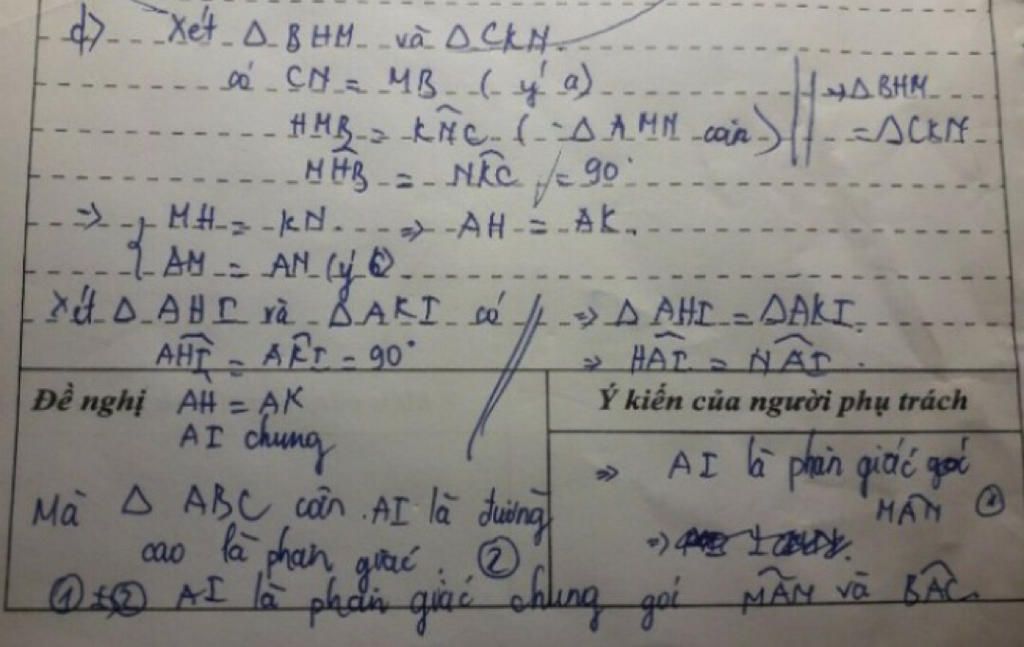 d) Xét Δ BHM và Δ CKN.
có CN = MB ( ý a)
HMB = KNC ( Δ AMN cân )
MHB = NKC = 90°
=> ΔBHM
= ΔCKN
=> { MH = KN. => AH = AK.
AM = AN (ý b)
Xét Δ AHI và ΔAKI có
AHI = AKI = 90°
=> Δ AHI = ΔAKI.
=> HAI = NAI.
Đề nghị
AH = AK
AI chung
Ý kiến của người phụ trách
=> AI là phân giác goi
MAN ①
Mà Δ ABC cân. AI là đường
cao là phan giác. ②
① ② AI là phân giác chung goi MAN và BAC.